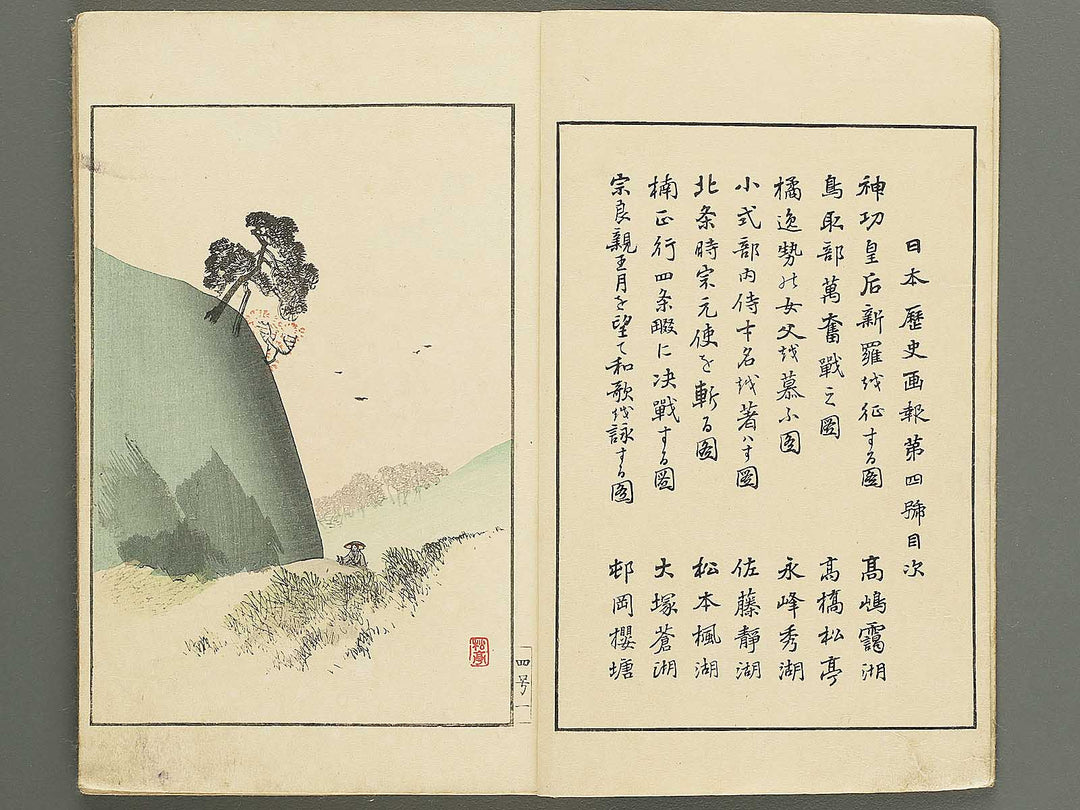 日本歷史画報第四號目次
神功皇后新羅越征する圖 髙嶋靄湖
鳥取部萬奮戰之圖 髙橋松亭
橘逸勢の女父越慕ふ圖 永峰秀湖
小式部内侍才名越著はす圖 佐藤靜湖
北条時宗元使を斬る圖 松本楓湖
楠正行四条畷に决戰する圖 大塚蒼湖
宗良親王月を望て和歌越詠する圖 邨岡櫻塘
四号 一
松亭